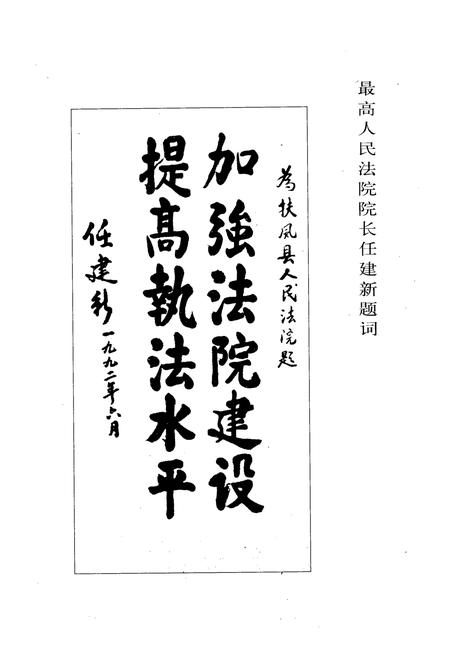 最高人民法院院长任建新题词
為扶风县人民法院題
加強法院建设
提高執法水平
任建新一九九二年六月